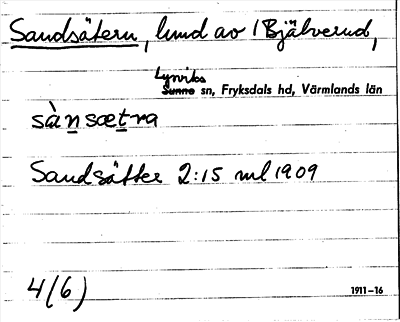 Sandsätern, lund av 1 Bjälverud,
Lysviks
Sunne sn, Fryksdals hd, Värmlands län
sànsætra
Sandsätter 2:15 ml 1909
4(6)
1911-16